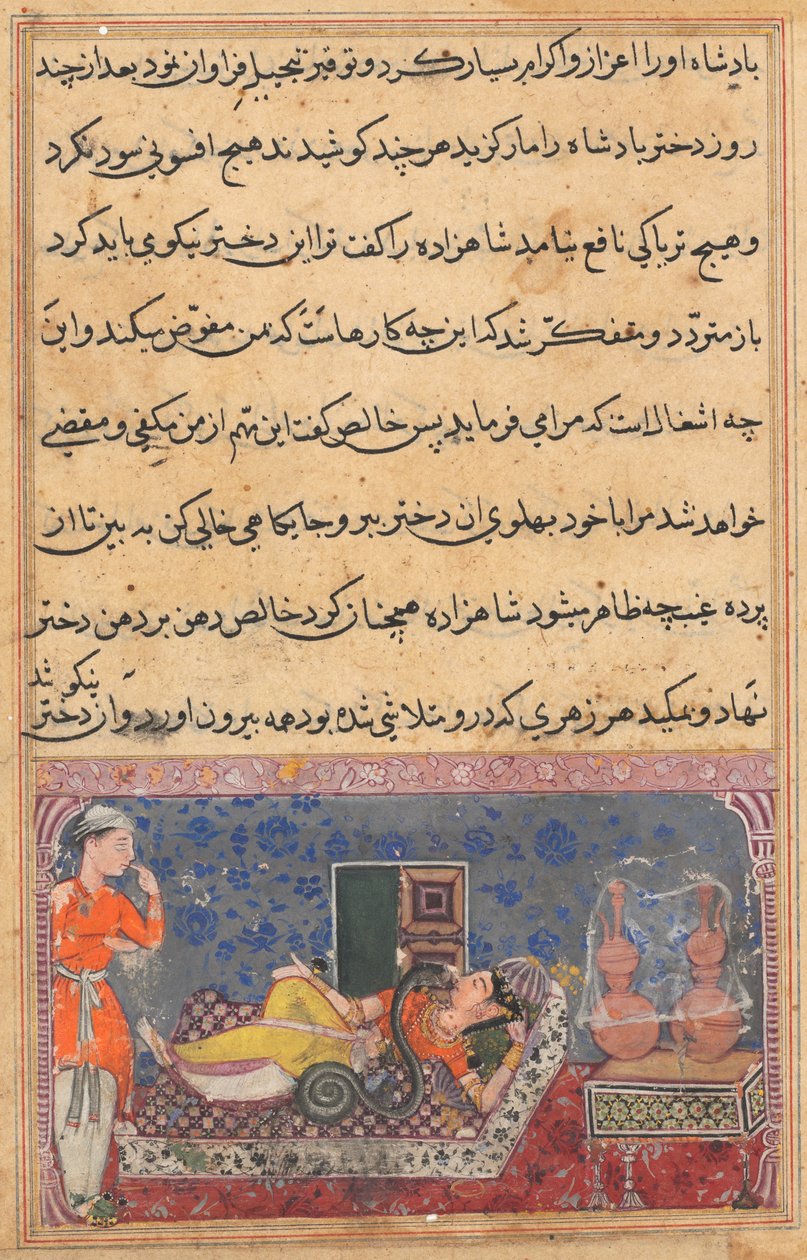 بادشاه اورا اعزاز و اکرام بسیار کرد و توقیر تبجیل فراوان نمود بعد از چند
روز دختر بادشاه را مار کزید هر چند کوشیدند هیچ افسونی سود نکرد
و هیچ تریاکی نافع نیامد شاهزاده را کفت ترا این دختر نیکو می باید کرد
باز متردّد و متفکّر شد که این چه کارهاست که بمن مفوّض میکند و این
چه اشغال است که مرا می فرماید پس خالص کفت این مهّم از من مکفی و مقضی
خواهد شد مرا با خود بهلوی ان دختر ببر و جایکاهی خالی کن به بین تا از
پرده غیب چه ظاهر میشود شاهزاده همچنان کرد خالص دهن بر دهن دختر
نهاد و بمکید هر زهری که درو متلاشی شده بود همه بیرون اورد و آن دختر
نیکو شد